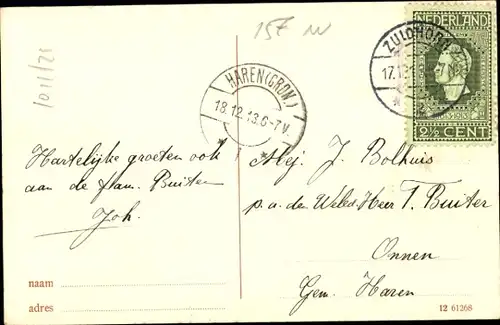 15E
10/11/21
NEDERLAND
1813-1913
2½ CENT
ZUIDHORN
17.12
HAREN (GRON.)
18.12.13.6-7V.
Hartelijke groeten ook
aan de fam. Buiter
Joh.
Mej. J. Bolhuis
p.a. den Weled. Heer T. Buiter
Onnen
Gem. Haren
naam
adres
12 61268